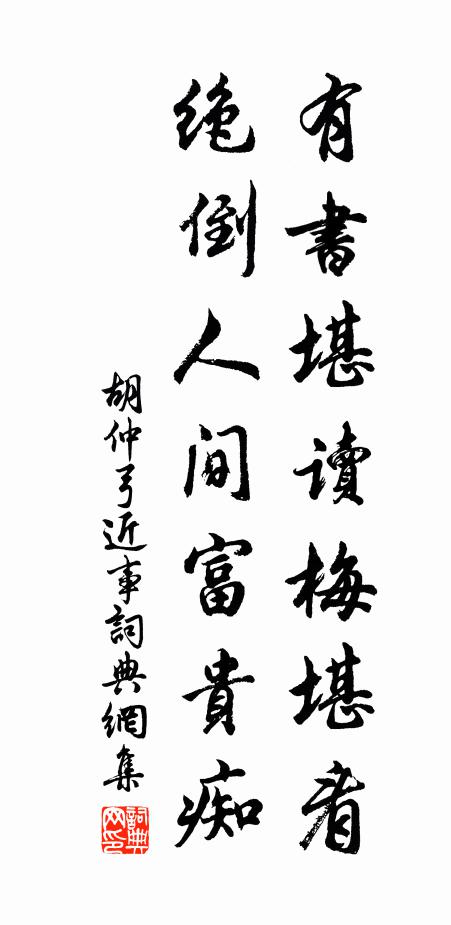 有書堪读梅堪看
绝倒人间富貴痴
胡仲弓近事詞典網集
詞典网印